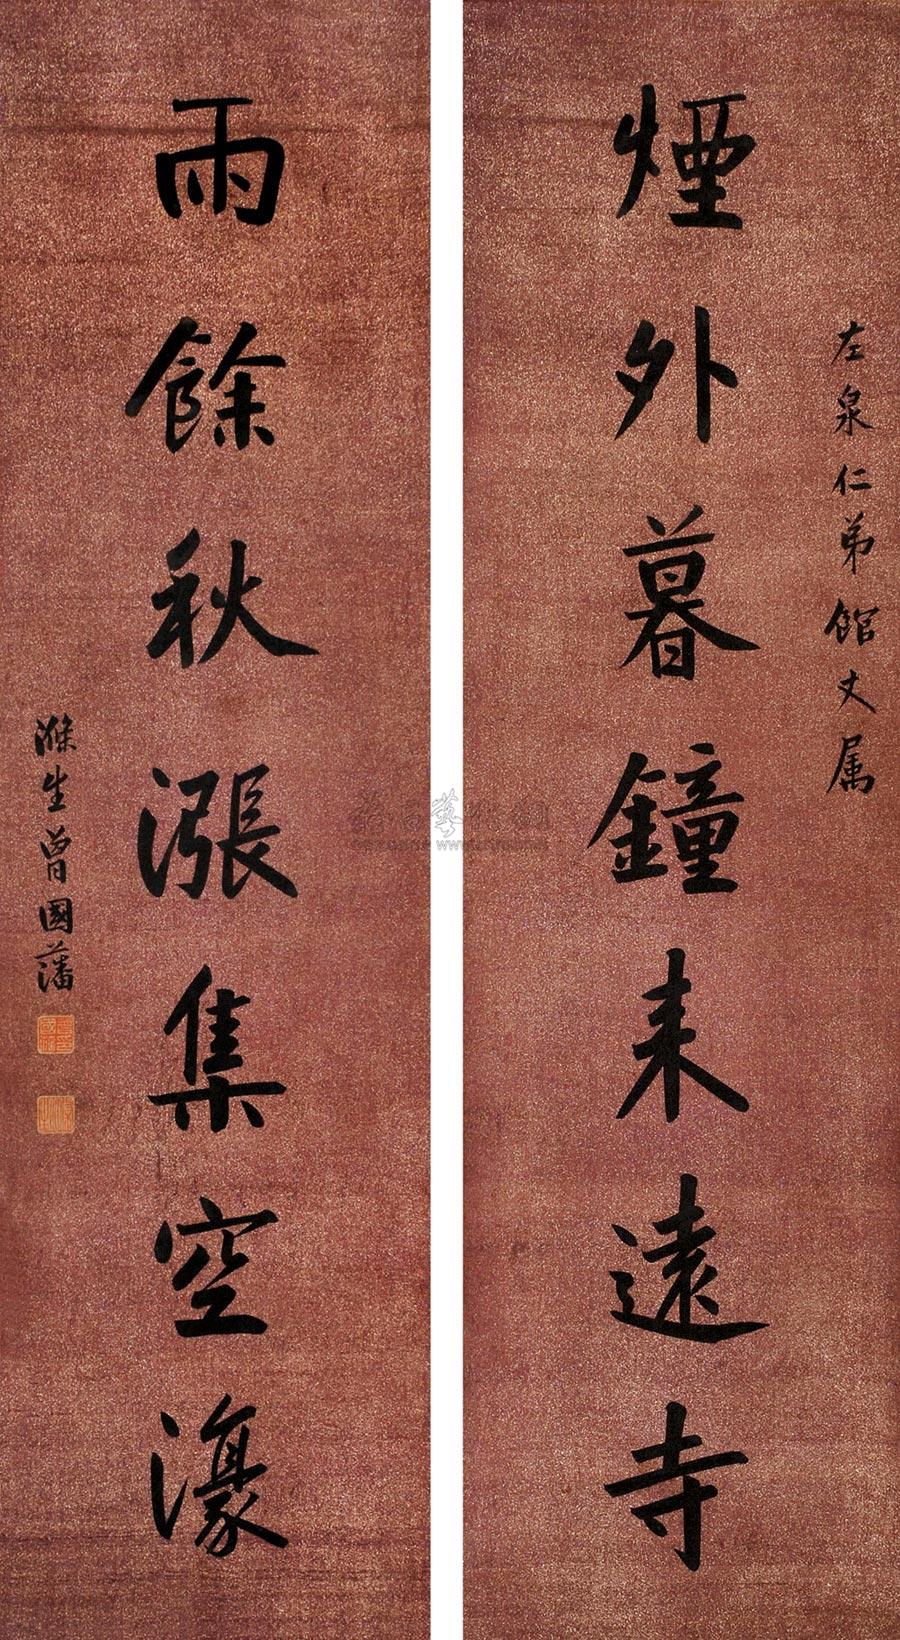 左泉仁弟館丈属
煙外暮鐘来遠寺
雨餘秋漲集空濠
滌生曾國藩